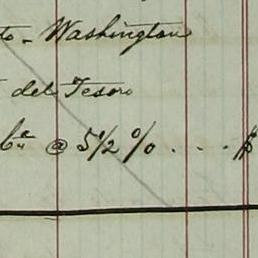 to - Washington
del Tesoro
@ 5 1/2 % . . . $